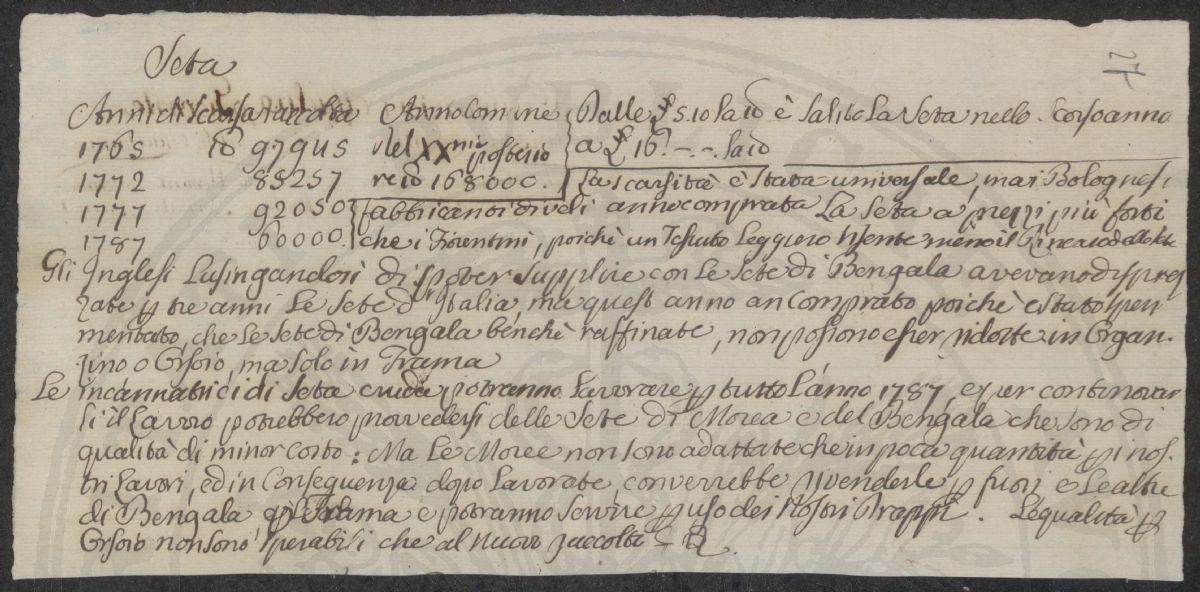 Seta
27
Anni di scarsa raccolta Anno Comune Dalle £ 5.10 la lb è salita la Seta nello scorso anno
1765 lb 97945 del XXmio posterio a £ 16.-.- la lb
1772 85257 re lb 168000. La scarsità è stata universale, ma i Bolognesi
1777 92050 fabbricanti di veli anno comprata la seta a prezzi più forti
1787 60000. che i Fiorentini, poichè un Tessuto leggiero risente meno il rincaro della seta
Gli Inglesi lusingandosi di poter supplire con le Sete di Bengala avevano disprez
zate p tre anni le Sete d'Italia, ma quest'anno an Comprato poichè è stato speri
mentato, che le sete di Bengala benchè raffinate, non possono esser ridotte in Organ-
zino o Orsoio, ma solo in Trama
Le incannatrici di Seta cruda potranno lavorare p tutto l'anno 1787, e per continovar
si il lavoro potrebbero provvedersi delle Sete di Morea e del Bengala che sono di
qualità di minor costo: Ma le Moree non sono adattate che in poca quantità p i nos-
tri lavori, ed in Conseguenza dopo lavorate, converrebbe rivenderle p fuori e le altre
di Bengala, p Trama e potranno servire p uso dei nostri Drappi. Le qualità p
Orsoio non sono sperabili che al nuovo raccolto -